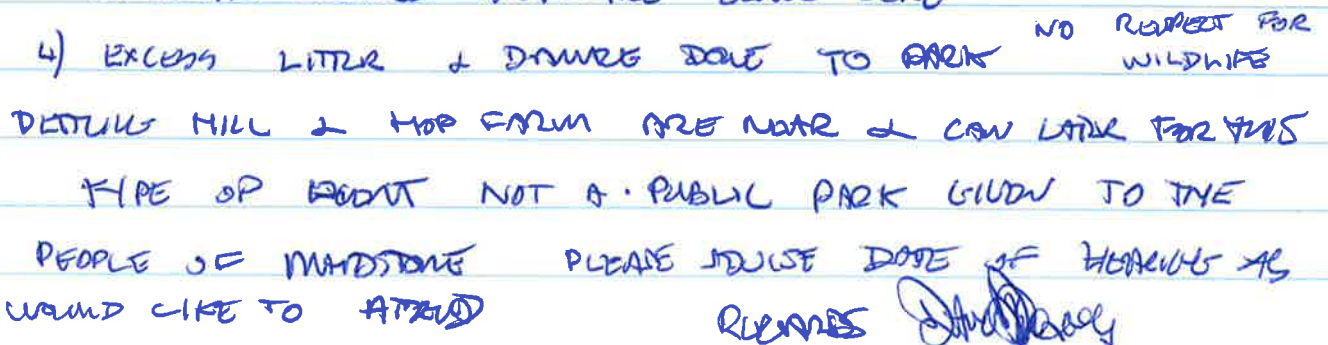 4) EXCESS LITTER & DAMAGE DONE TO PARK NO RESPECT FOR WILDLIFE
DETLING HILL & HOP FARM ARE NEAR & CAN CATER FOR THIS
TYPE OF EVENT NOT A PUBLIC PARK GIVEN TO THE
PEOPLE OF MAIDSTONE PLEASE ADVISE DATE OF HEARING AS
WOULD LIKE TO ATTEND REGARDS